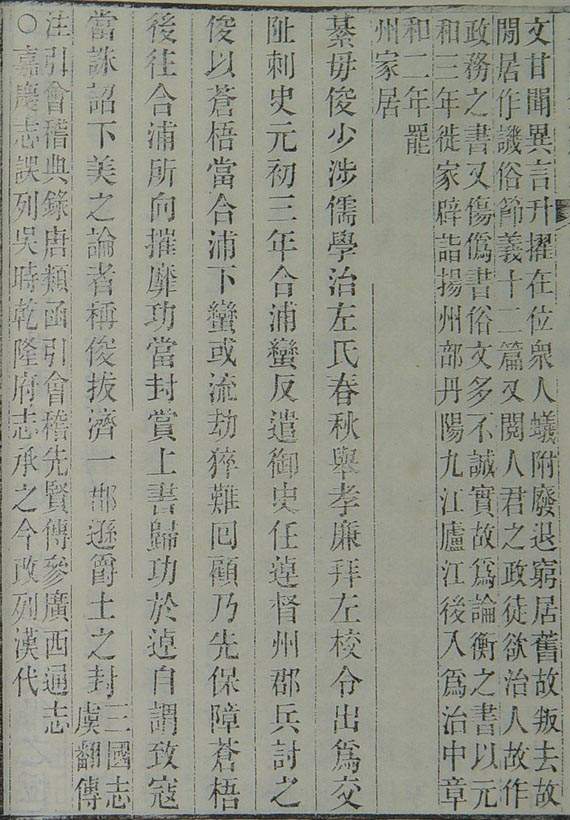 文甘聞異言升擢在位眾人蟻附廢退窮居舊故叛去故
閒居作譏俗節義十二篇又閔人君之政徒欲治人故作
政務之書又傷僞書俗文多不誠實故爲論衡之書以元
和三年徙家辟詣揚州部丹陽九江廬江後入爲治中章
和二年罷
州家居
綦毋俊少涉儒學治左氏春秋舉孝廉拜左校令出爲交
阯刺史元初三年合浦蠻反遣御史任逴督州郡兵討之
俊以蒼梧當合浦下蠻或流劫猝難回顧乃先保障蒼梧
後往合浦所向摧靡功當封賞上書歸功於逴自謂致寇
當誅詔下美之論者稱俊拔濟一郡遜爵土之封三國志
虞翻傳
注引會稽典錄唐類函引會稽先賢傳參廣西通志
○嘉慶志誤列吳時乾隆府志承之今改列漢代